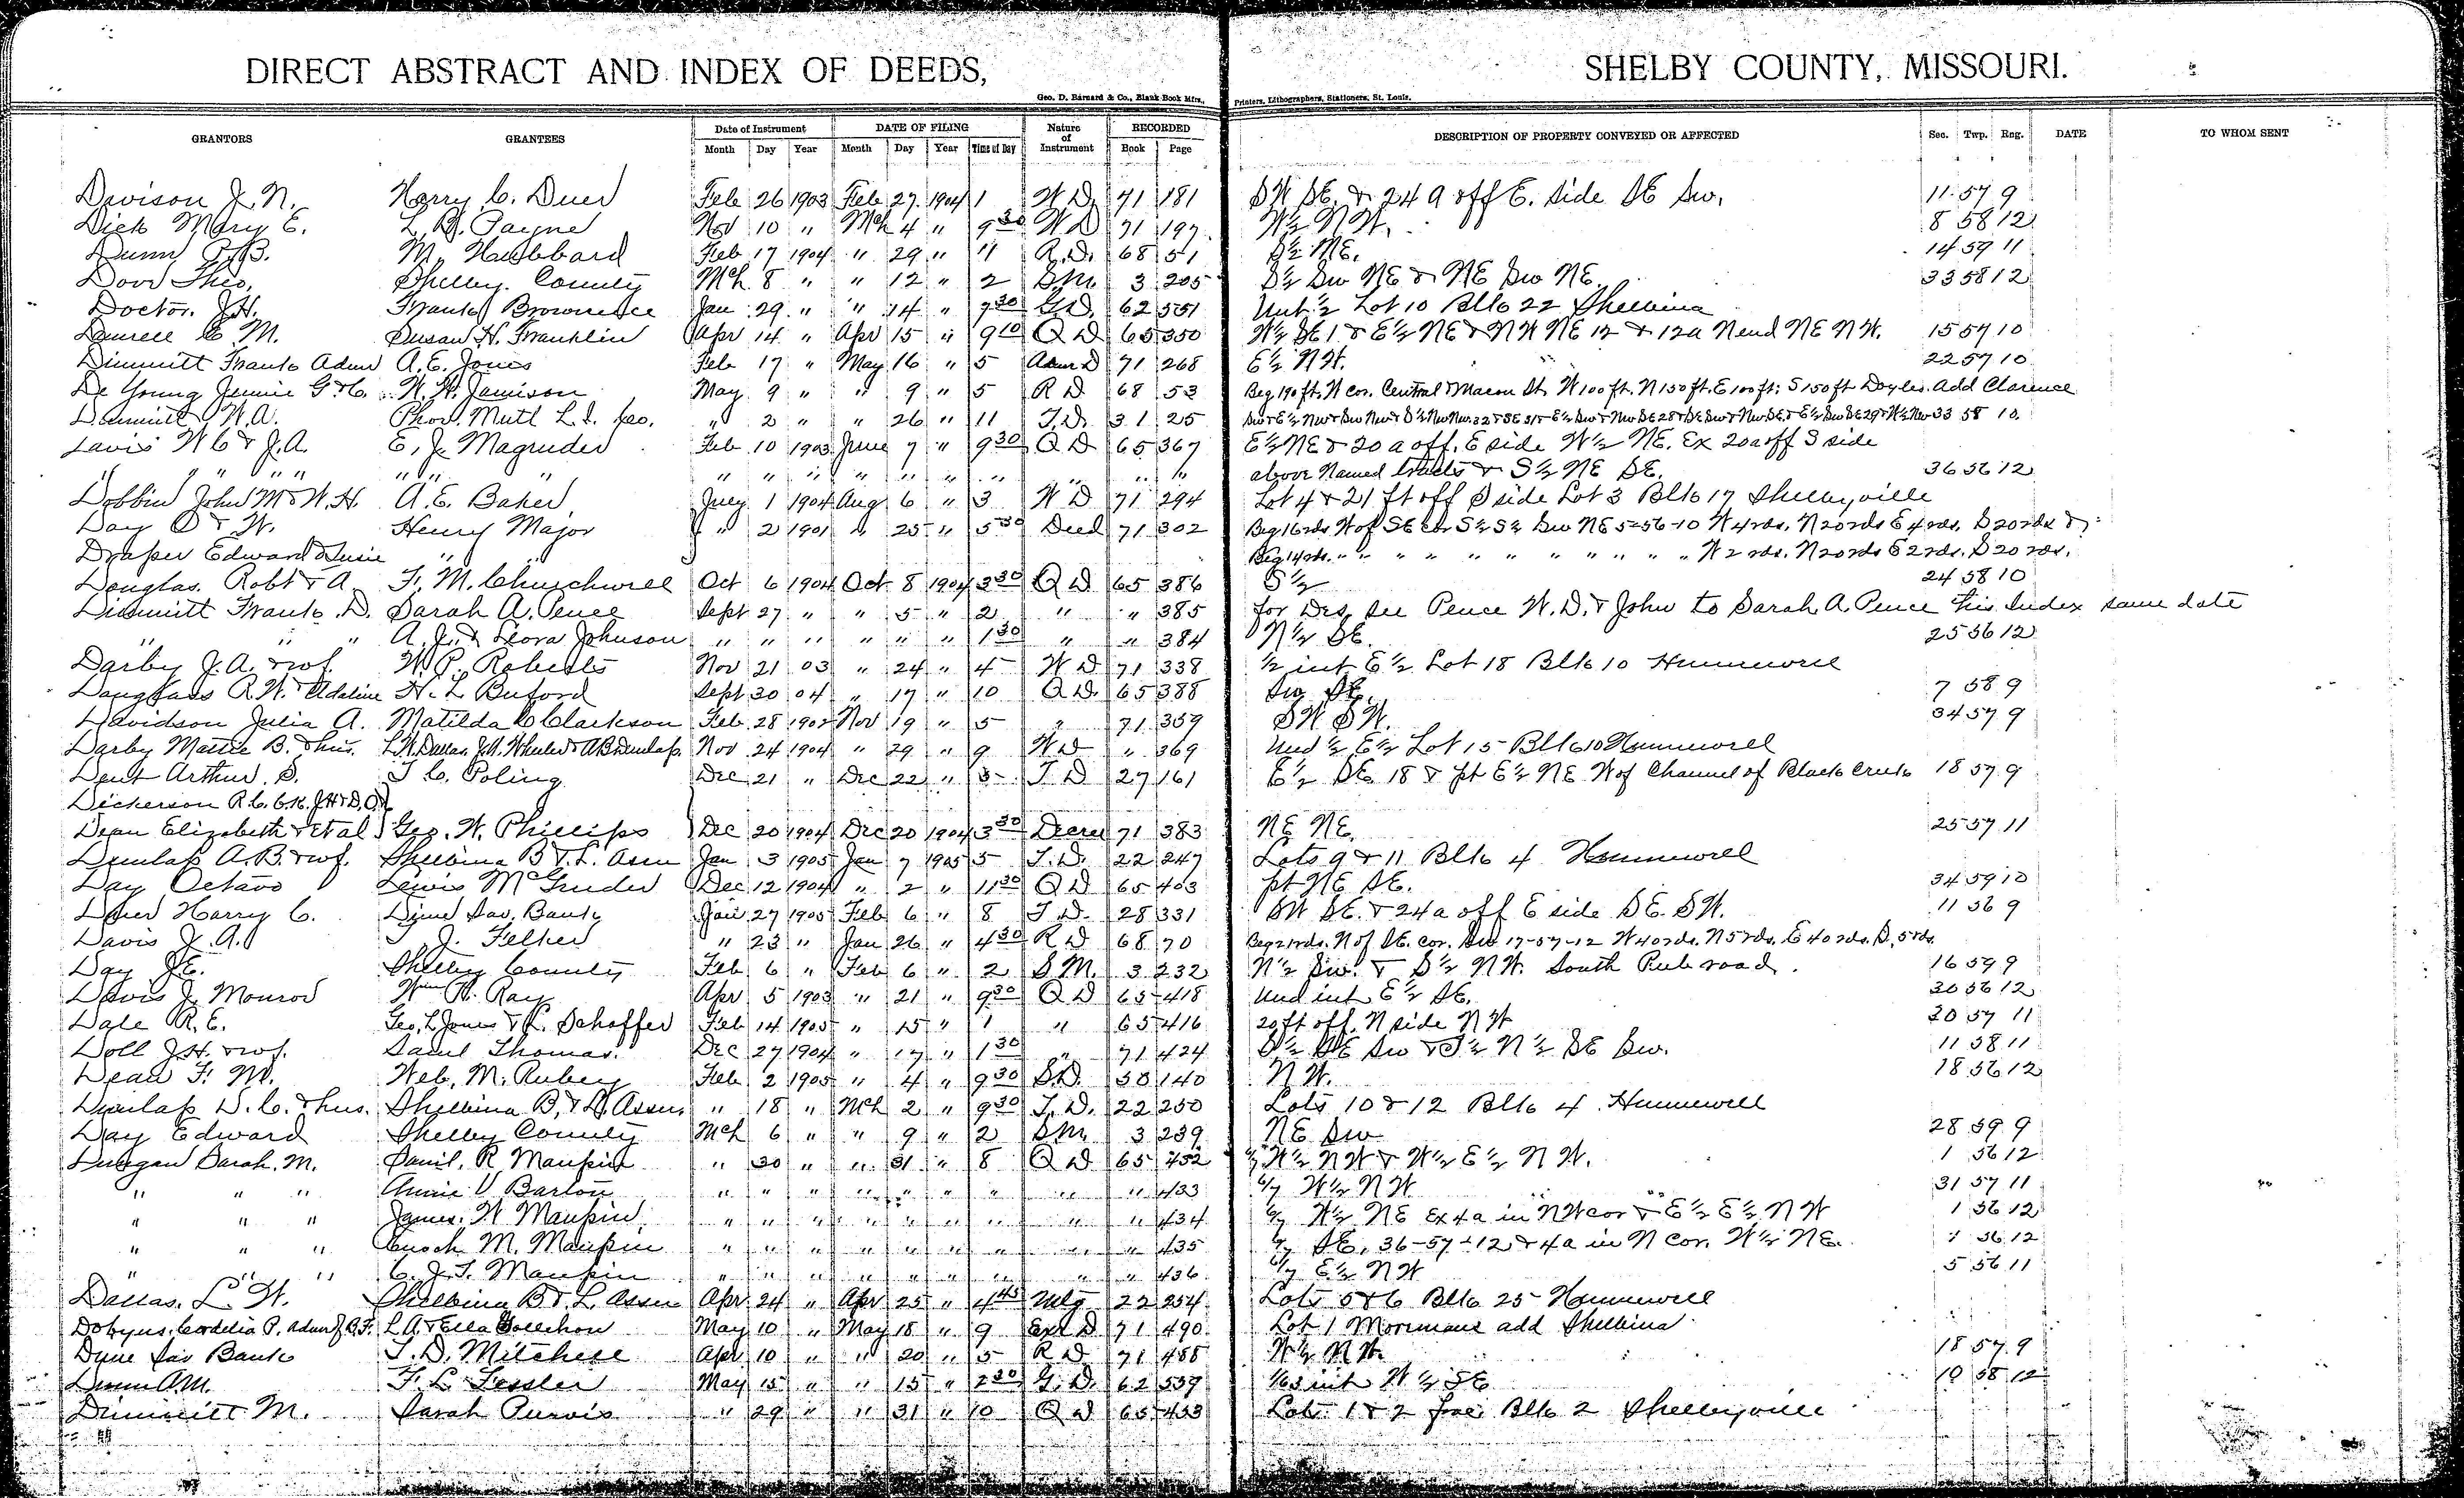 DIRECT ABSTRACT AND INDEX OF DEEDS, SHELBY COUNTY, MISSOURI.
Geo. D. Barnard & Co., Blank Book Mfrs., Printers, Lithographers, Stationers, St. Louis.
GRANTORS GRANTEES Date of Instrument DATE OF FILING Nature of Instrument RECORDED DESCRIPTION OF PROPERTY CONVEYED OR AFFECTED Sec. Twp. Rng. DATE TO WHOM SENT
Month Day Year Month Day Year Time of Day Book Page
Davison J. N. Harry C. Duer Feb 26 1903 Feb 27 1904 1 W D 71 181 SW SE. & 24 a off E. side SE Sw. 11 57 9
Dick Mary E. L. B. Payne Nov 10 " Mch 4 " 9 30 W D 71 197 W½ N W. 8 58 12
Dunn P. B. M. Hubbard Feb 17 1904 " 29 " 11 R.D. 68 51 S½ NE. 14 59 11
Door Theo. Shelby County Mch 8 " " 12 " 2 S M. 3 205 S½ Sw NE & NE Sw NE. 33 58 12
Doctor J. H. Frank Brownlee Jan 29 " " 14 " 7 30 G D. 62 551 Unt ½ Lot 10 Blk 22 Shelbina
C M. Susan H. Franklin Apr 14 " Apr 15 " 9 10 Q D 65 350 W½ SE 1 & E½ NE & N W NE 12 & 12a N end NE N W. 15 57 10
Dimmitt Frank Admr A. E. Jones Feb 17 " May 16 " 5 Admr D 71 268 E½ N W. 22 57 10
De Young Jennie G & C. W. H. Jamison May 9 " " 9 " 5 R D 68 53 Beg 190 ft. W cor. Central & Macon St. W 100 ft. N 150 ft. E 100 ft. S 150 ft Doyles. add Clarence
Dimmitt W. A. Prov. Mutl L. I. Co. " 2 " " 26 " 11 T. D. 31 25 33 58 10
Davis W C & J. A. E. J. Magruder Feb 10 1903 June 7 " 9 30 Q D 65 367 E½ NE & 20 a off E side W½ NE. Ex 20a off S side
" " " " " " " " " " " " " " " " above Named tracts & S½ NE SE. 36 56 12
Dobbin John M & W. H. A. E. Baker July 1 1904 Aug 6 " 3 W D 71 294 Lot 4 & 21 ft off S side Lot 3 Blk 17 Shelbyville
Day O & W. Henry Major " 2 1901 " 25 " 5 30 Deed 71 302 Beg 16 rds W of SE cor S½ S½ Sw NE 5-56-10 W 4 rds. N 20 rds E 4 rds. S 20 rds &
Draper Edward & Susie " " Beg 14 rds. " " " " " " " " " " W 2 rds. N 20 rds E 2 rds. S 20 rds.
Douglas Robt & A. F. M. Churchwell Oct 6 1904 Oct 8 1904 3 30 Q D 65 386 S½ 24 58 10
Dimmitt Frank D. Sarah A. Pence Sept 27 " " 5 " 2 " " 385 for Des, see Pence W. D. & John to Sarah A. Pence this Index same date
" " " A. J. & Leora Johnson " " " " " " 1 30 " " 384 N½ SE. 25 56 12
Darby J. A. & wf. W. P. Roberts Nov 21 03 " 24 " 4 W D 71 338 ½ int E½ Lot 18 Blk 10 Hunnewell
Douglass R. W. & Adaline H. L. Buford Sept 30 04 " 17 " 10 Q D. 65 388 Sw SE. 7 58 9
Davidson Julia A. Matilda C Clarkson Feb 28 1902 Nov 19 " 5 " 71 359 SW SW. 34 57 9
Darby Mattie B. & hus. L. W. Dallas, J. A. Wheeler & A. B. Dunlap. Nov 24 1904 " 29 " 9 W D " 369 Und ½ E½ Lot 15 Blk 10 Hunnewell
Dent Arthur S. T. C. Poling Dec 21 " Dec 22 " 3 T. D 27 161 E½ SE 18 & pt E½ NE W of Channel of Black Creek 18 57 9
Dickerson R. C.
Dean Elizabeth & et al Geo. W. Phillips Dec 20 1904 Dec 20 1904 3 30 Decree 71 383 NE NE. 25 57 11
Dunlap A. B. & wf. Shelbina B & L. Assn Jan 3 1905 Jan 7 1905 5 T. D. 22 247 Lots 9 & 11 Blk 4 Hunnewell
Day Octavo Lewis McGruder Dec 12 1904 " 2 " 11 30 Q D 65 403 pt NE SE. 34 59 10
Duer Harry C. Dime Sav. Bank Jan 27 1905 Feb 6 " 8 T D. 28 331 SW SE. & 24 a off E side SE. SW. 11 56 9
Davis J. A. J. Felker " 23 " Jan 26 " 4 30 R D 68 70 Beg 21 rds. N of SE. cor. Sw 17-57-12 W 40 rds. N 5 rds. E 40 rds. S. 5 rds.
Day J E. Shelby County Feb 6 " Feb 6 " 2 S M. 3 232 N½ Sw. & S½ N W. South Pub road. 16 59 9
Davis J. Monroe Wm H. Ray Apr 5 1903 " 21 " 9 30 Q D 65 418 Und int E½ SE. 30 56 12
Dale R. E. Geo. L. Jones & L. Schoffer Feb 14 1905 " 15 " 1 " 65 416 20 ft off N side N W 20 57 11
Doll J. H. & wf. Saml Thomas. Dec 27 1904 " 17 " 1 30 " 71 424 S½ SE Sw & S½ N½ SE Sw. 11 58 11
Dean F. M. Web. M. Rubey Feb 2 1905 " 4 " 9 30 S. D. 38 140 N W. 18 56 12
Dunlap D. C. & hus. Shelbina B. & L. Assn. " 18 " Mch 2 " 9 30 T. D. 22 250 Lots 10 & 12 Blk 4 Hunnewell
Day Edward Shelby County Mch 6 " " 9 " 2 S M. 3 239 NE Sw 28 59 9
Duggan Sarah M. Danil. R Maupin " 30 " " 31 " 8 Q D 65 432 W½ N W & W½ E½ N W. 1 56 12
" " " Annie V Barton " " " " " " " " " 433 6/7 W½ N W 31 57 11
" " " James. W Maupin " " " " " " " " " 434 6/7 W½ NE Ex 4 a in N W cor & E½ E½ N W 1 56 12
" " " Enoch M. Maupin " " " " " " " " " 435 6/7 SE. 36-57-12 & 4 a in N cor. W½ NE. 1 56 12
" " " C. J. T. Maupin " " " " " " " " " 436 6/7 E½ N W 5 56 11
Dallas. L. W. Shelbina B & L Assn Apr 24 " Apr 25 " 4 45 Mtg 22 254 Lots 5 & 6 Blk 25 Hunnewell
Dobyns, Cordelia P. Admr J. B. F. L. A. & Ella Gollehon May 10 " May 18 " 9 71 490 Lot 1 Morrimans add Shelbina
Dime Sav Bank T. D. Mitchell Apr 10 " " 20 " 5 R D 71 488 W½ N W. 18 57 9
Dunn A. M. F. L. Fessler May 15 " " 15 " 2 30 G. D. 62 559 1/63 int W½ SE 10 58 12
Dimmitt M. Sarah Purvis " 29 " " 31 " 10 Q D 65 453 Lots 1 & 2 Blk 2 Shelbyville